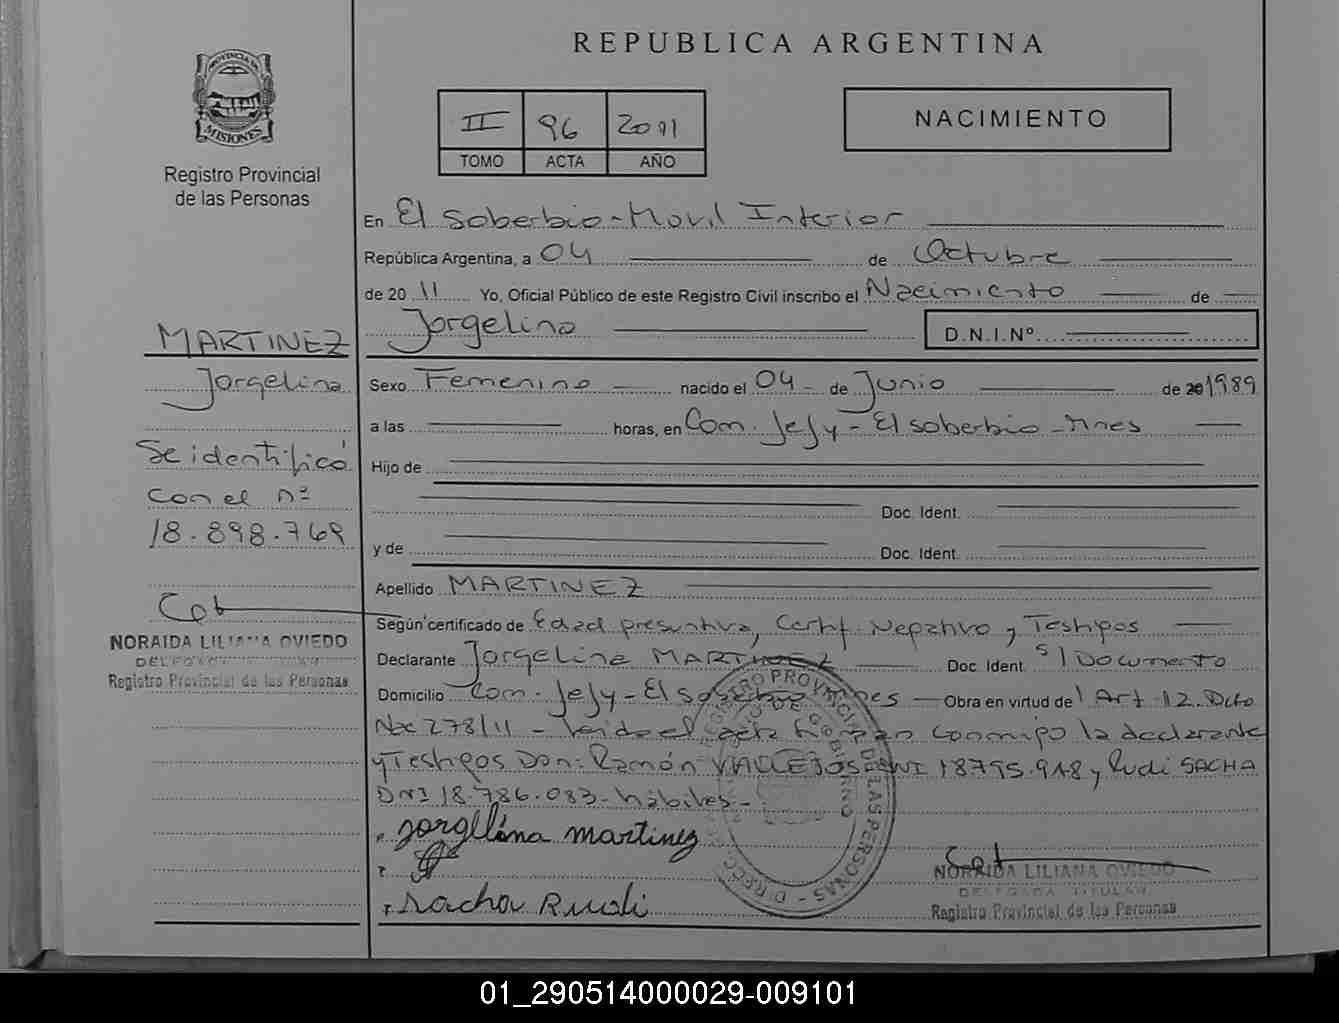 REPUBLICA ARGENTINA
PROVINCIA DE
MISIONES
Registro Provincial
de las Personas
II 96 2011
TOMO ACTA AÑO
NACIMIENTO
En El Soberbio - Movil Interior
República Argentina, a 04 de Octubre
de 2011 Yo, Oficial Público de este Registro Civil inscribo el Nacimiento de
Jorgelina
D.N.I.Nº
MARTINEZ
Jorgelina
Se identificó
con el nº
18.898.769
NORAIDA LILIANA OVIEDO
Registro Provincial de las Personas
Sexo Femenino nacido el 04 de Junio de 1989
a las horas, en Com. Jejy - El soberbio - Mnes
Hijo de
Doc. Ident.
y de Doc. Ident.
Apellido MARTINEZ
Según certificado de Edad presuntiva, Certif. Negativo y Testigos
Declarante Jorgelina MARTINEZ Doc. Ident. S/Documento
Domicilio Com. Jejy - El soberbio Mnes Obra en virtud de Art. 12. Dcto
Nac 278/11 - leida el acta firman conmigo la declarante
y Testigos Don: Ramón VALLEJOS DNI 18795.918 y Rudi SACHA
DNI 18.786.083 - hábiles -
jorgelina martinez
Sacha Rudi
NORAIDA LILIANA OVIEDO
DELEGADA TITULAR
Registro Provincial de las Personas
01_290514000029-009101